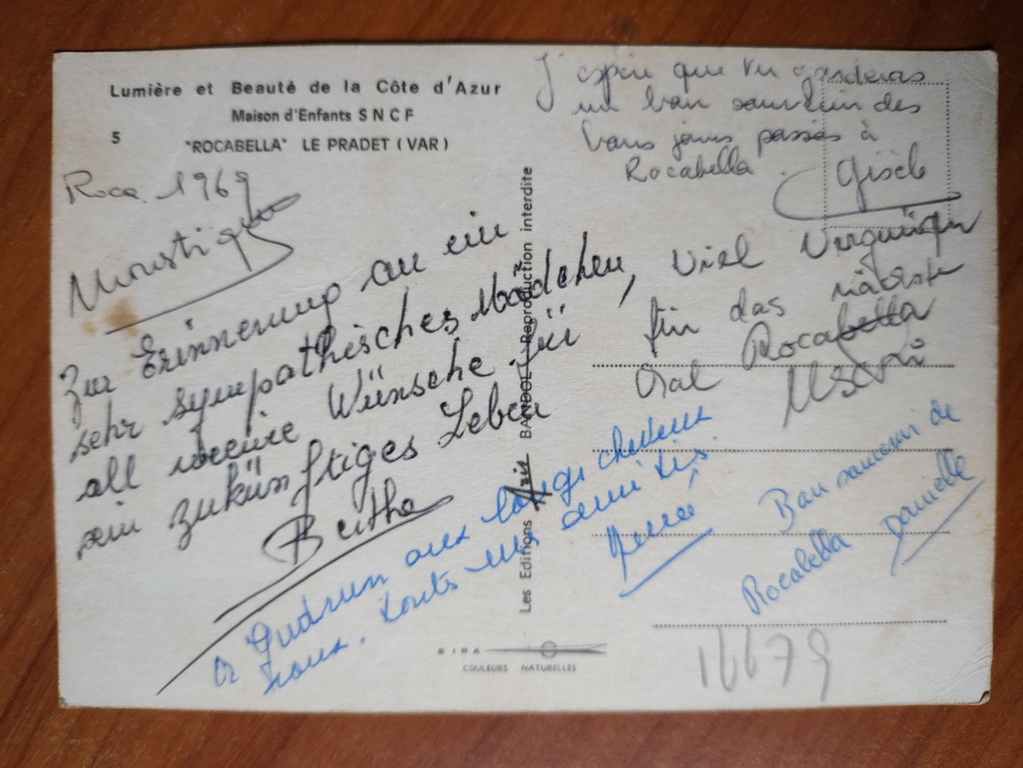 Lumière et Beauté de la Côte d'Azur
Maison d'Enfants SNCF
5
"ROCABELLA" LE PRADET (VAR)
J'espère que tu garderas
un bon souvenir des
bons jours passés à
Rocabella.
Gisèle
Roca 1969
Moustique
Zur Erinnerung an ein
sehr sympathisches Mädchen,
all meine Wünsche für
sein zukünftiges Leben
Berthe
Viel Vergnügen
für das nächste
Mal Rocabella
A Gudrun aux longs cheveux
roux. Toutes mes amitiés.
Bon souvenir de
Rocabella Danielle
Les Editions Azis BANDOL - Reproduction interdite
GIRA
COULEURS NATURELLES
16679